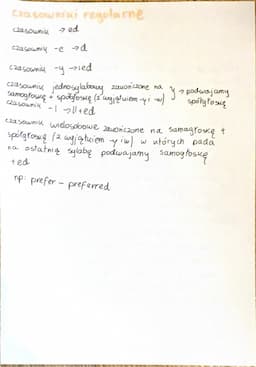 czasowniki regularne
czasownik → ed
czasownik -e → d
czasownik -y → ied
czasownik jednosylabowy zakończone na } → podwajamy
samogłoskę + spółgłoskę (z wyjątkiem -y i w) spółgłoskę
czasownik -l → ll+ed
czasownik wielosobowe zakończone na samogłoskę +
spółgłoskę (z wyjątkiem y i w) w których pada
na ostatnią sylabę podwajamy samogłoskę
+ ed
np: prefer - preferred